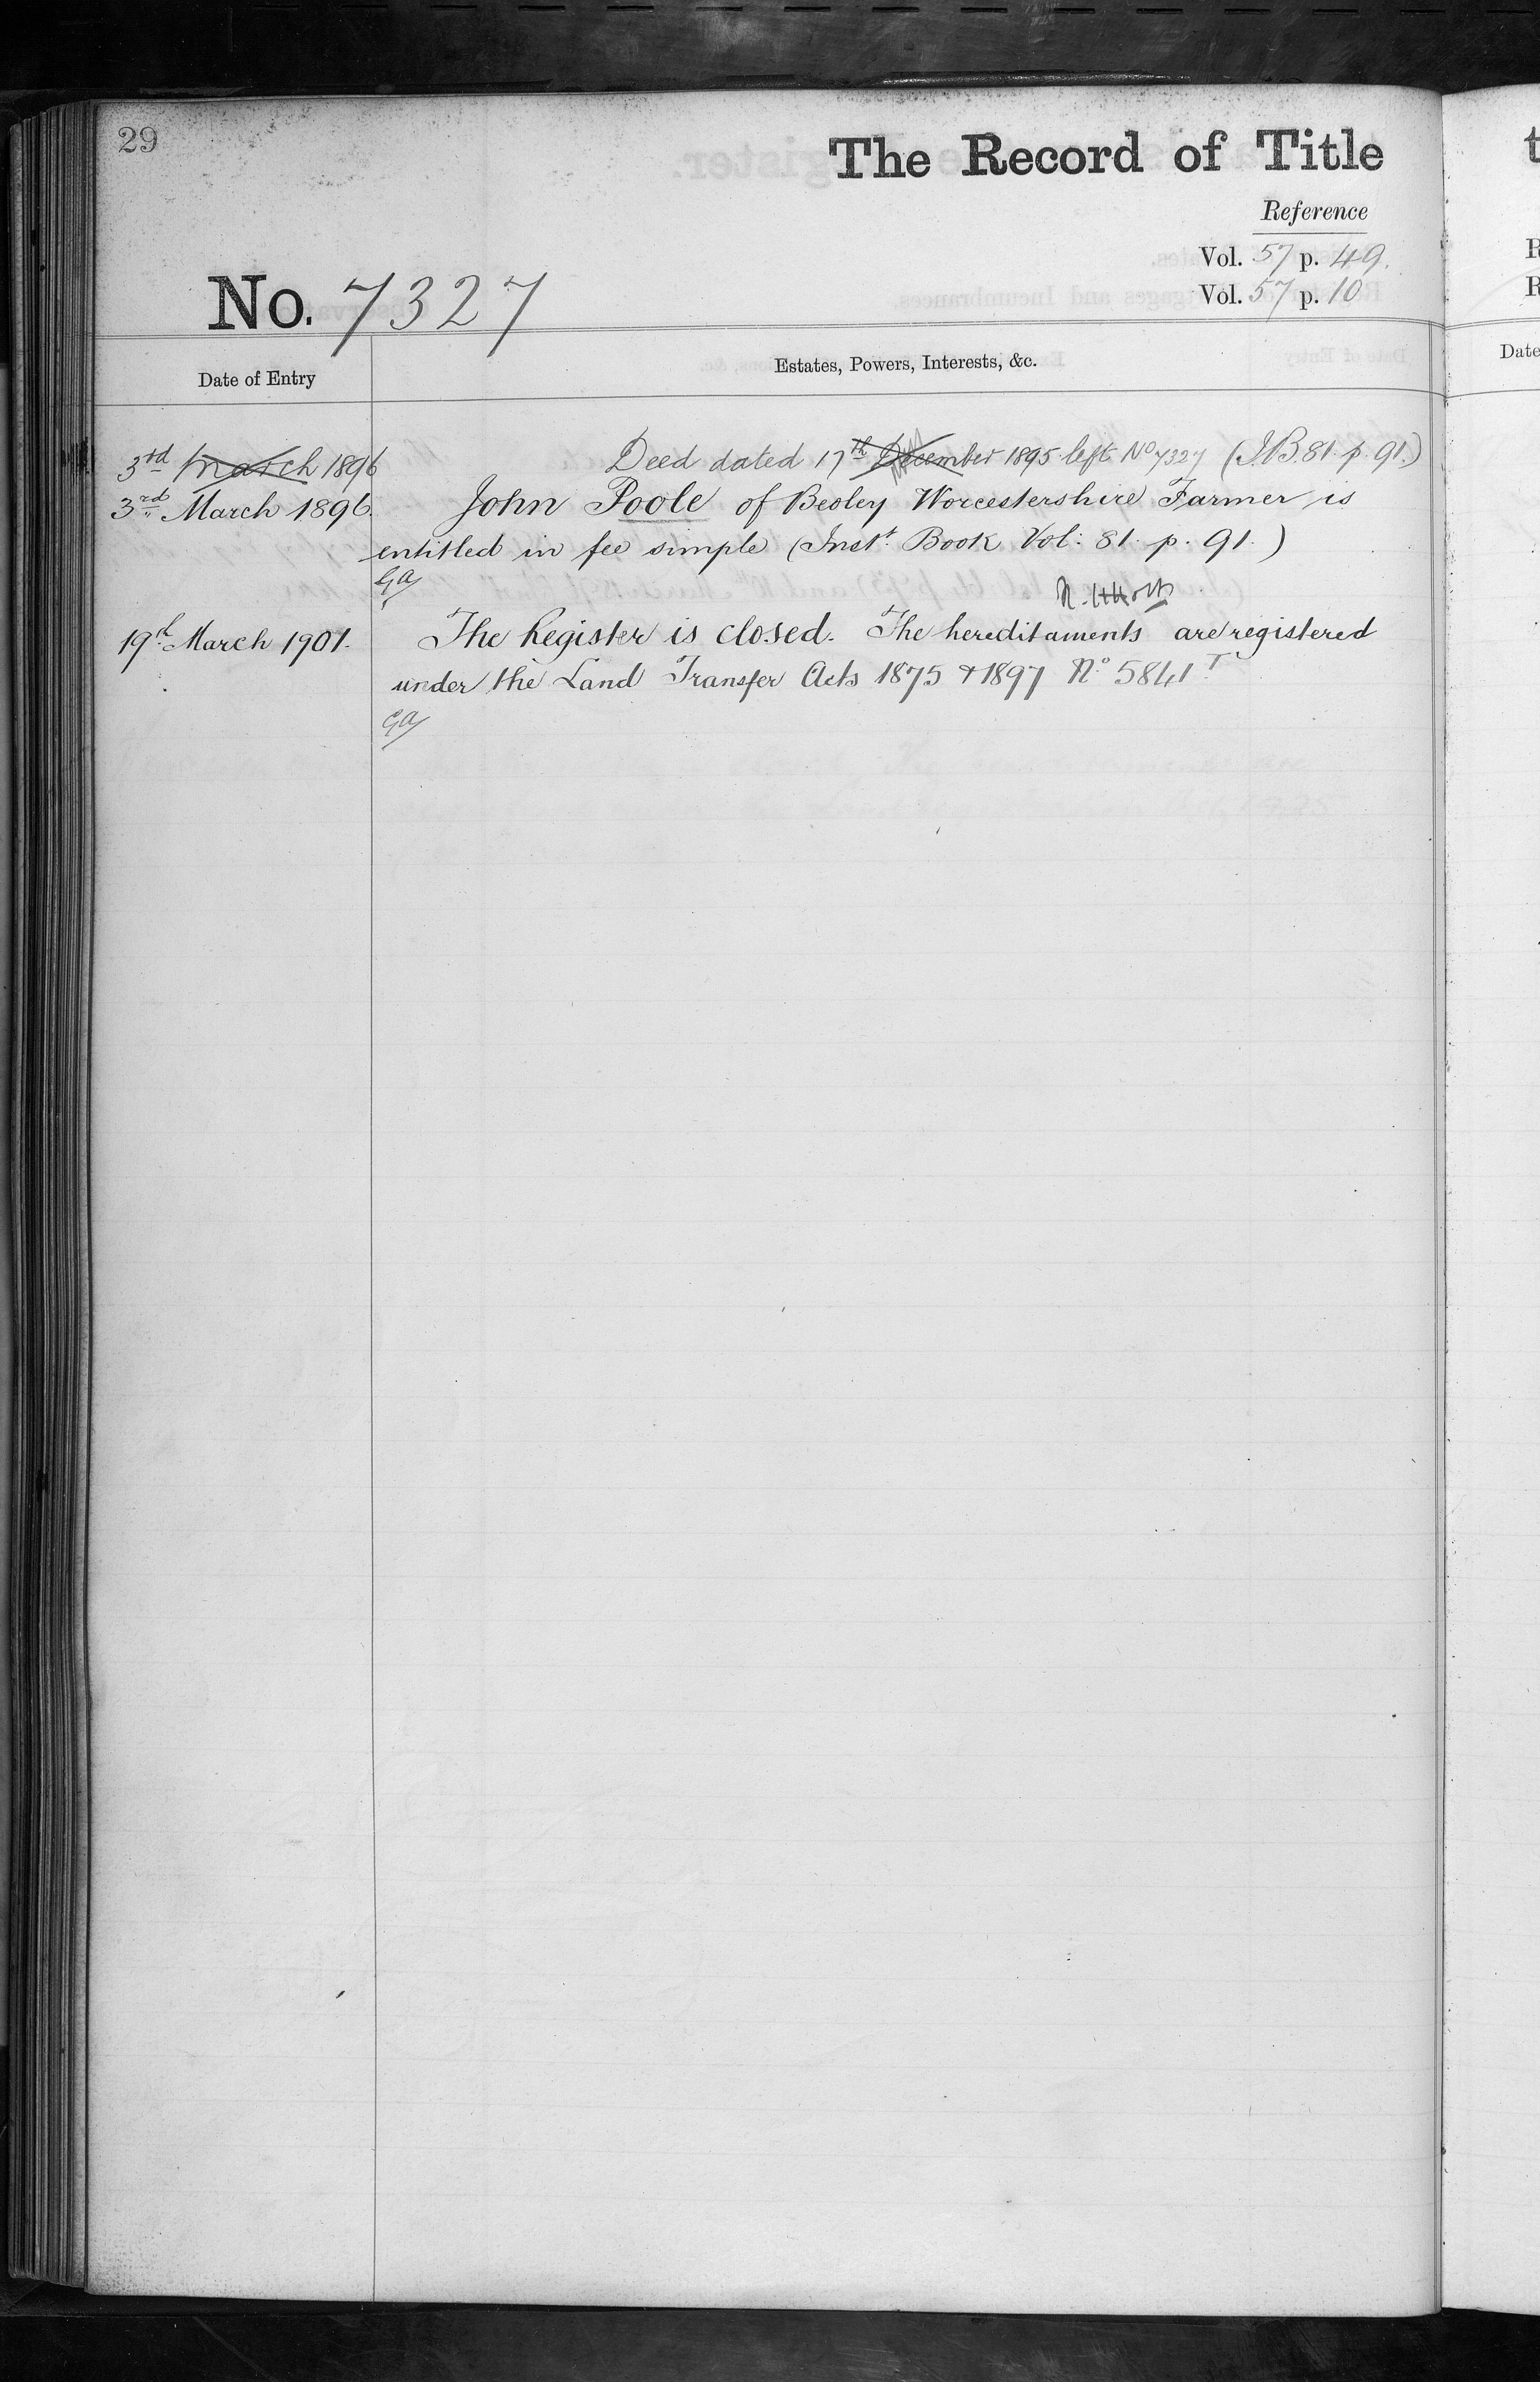 29
The Record of Title
Reference
Vol. 57 p. 49.
Vol. 57 p. 10
No. 7327
Date of Entry
Estates, Powers, Interests, &c.
3rd March 1896 Deed dated 17th December 1895 left No 7327 (I.B. 81. p. 91.)
3rd March 1896. John Poole of Beoley Worcestershire Farmer is
entitled in fee simple (Inst. Book Vol: 81. p. 91.)
GA
19th March 1901. The Register is closed. The hereditaments are registered
under the Land Transfer Acts 1875 & 1897 No 5841 T
GA
Date